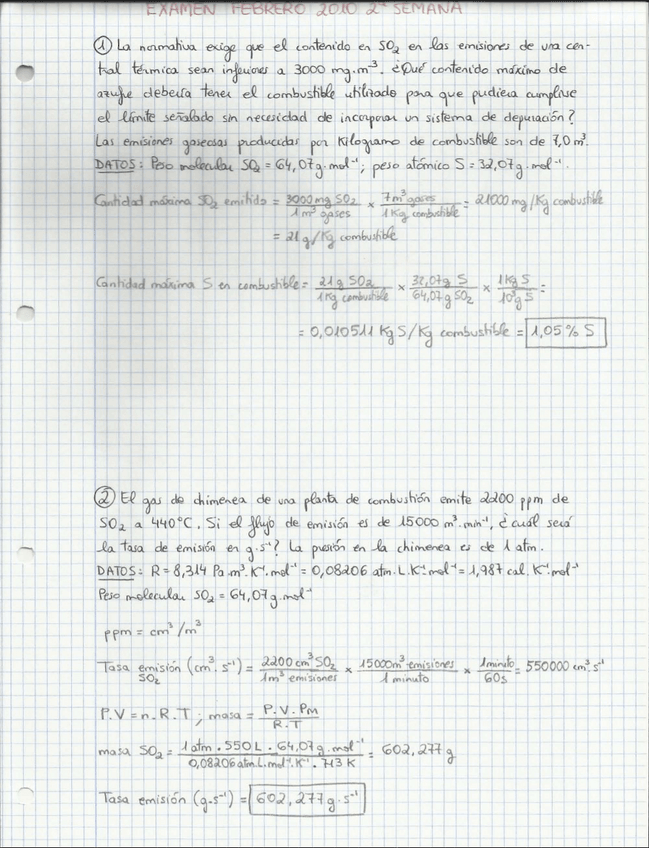 EXAMEN FEBRERO 2010 2ª SEMANA
① La normativa exige que el contenido en SO₂ en las emisiones de una cen-
tral térmica sean inferiores a 3000 mg·m⁻³. ¿Qué contenido máximo de
azufre debería tener el combustible utilizado para que pudiera cumplirse
el límite señalado sin necesidad de incorporar un sistema de depuración?
Las emisiones gaseosas producidas por Kilogramo de combustible son de 7,0 m³.
DATOS: Peso molecular SO₂ = 64,07 g·mol⁻¹; peso atómico S = 32,07 g·mol⁻¹.
Cantidad máxima SO₂ emitido = 3000 mg SO₂ / 1 m³ gases × 7 m³ gases / 1 Kg combustible = 21000 mg/Kg combustible
= 21 g/Kg combustible
Cantidad máxima S en combustible = 21 g SO₂ / 1 Kg combustible × 32,07 g S / 64,07 g SO₂ × 1 Kg S / 10³ g S =
= 0,010511 Kg S/Kg combustible = 1,05 % S
② El gas de chimenea de una planta de combustión emite 2200 ppm de
SO₂ a 440°C. Si el flujo de emisión es de 15000 m³·min⁻¹, ¿cuál será
la tasa de emisión en g·s⁻¹? La presión en la chimenea es de 1 atm.
DATOS: R = 8,314 Pa·m³·K⁻¹·mol⁻¹ = 0,08206 atm·L·K⁻¹mol⁻¹ = 1,987 cal·K⁻¹·mol⁻¹
Peso molecular SO₂ = 64,07 g·mol⁻¹
ppm = cm³/m³
Tasa emisión SO₂ (cm³·s⁻¹) = 2200 cm³ SO₂ / 1 m³ emisiones × 15000 m³ emisiones / 1 minuto × 1 minuto / 60 s = 550000 cm³·s⁻¹
P.V = n.R.T ; masa = P.V.Pm / R.T
masa SO₂ = 1 atm · 550 L · 64,07 g·mol⁻¹ / 0,08206 atm.L.mol⁻¹.K⁻¹ · 713 K = 602,277 g
Tasa emisión (g·s⁻¹) = 602,277 g·s⁻¹